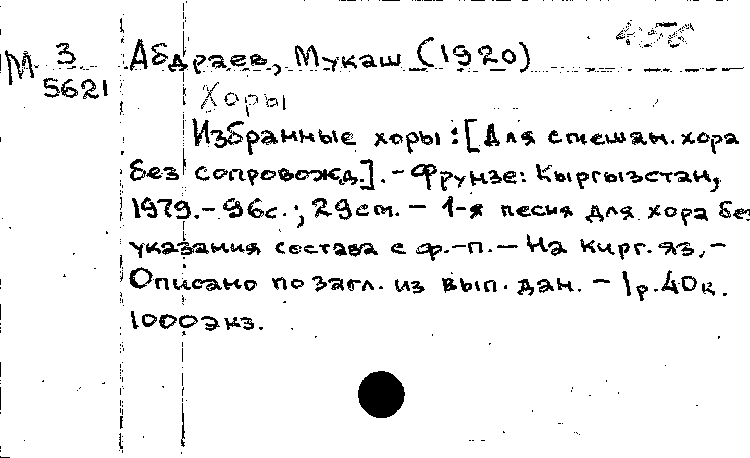 456
М 3 Абдраев, Мукаш (1920)
5621
Хоры
Избранные хоры : [Для смешан. хора
без сопровожд.]. - Фрунзе: Кыргызстан,
1979. - 96с. ; 29см. - 1-я песня для хора без
указания состава с ф.-п. - На кирг. яз. -
Описано по загл. из вып. дан. - 1р.40к.
1000экз.